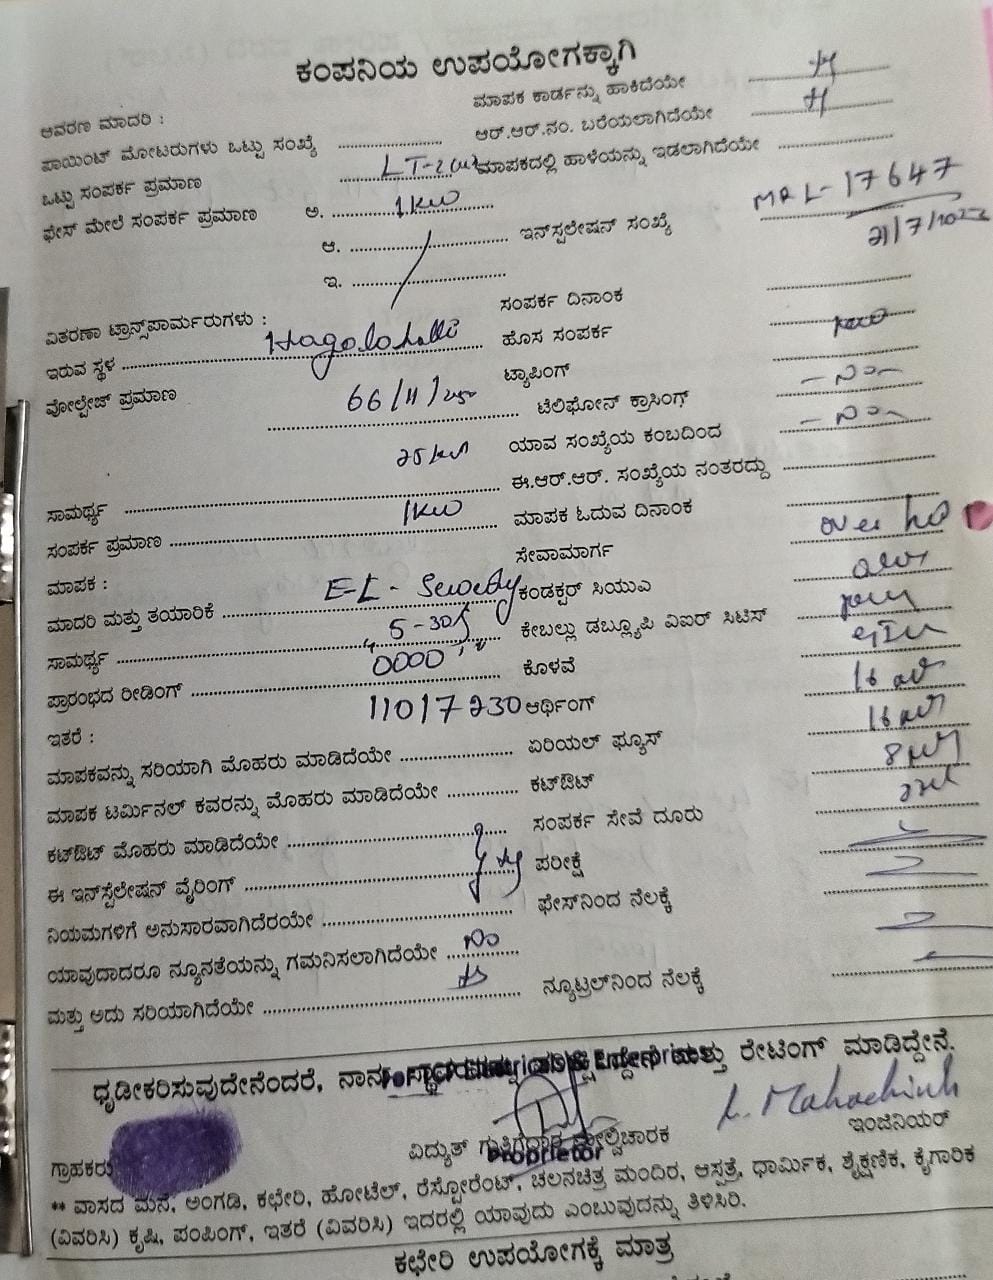 ಕಂಪನಿಯ ಉಪಯೋಗಕ್ಕಾಗಿ
ಆವರಣ ಮಾದರಿ : ಮಾಪಕ ಕಾರ್ಡನ್ನು ಹಾಕಿದೆಯೇ
ಪಾಯಿಂಟ್ ಮೋಟರುಗಳು ಒಟ್ಟು ಸಂಖ್ಯೆ ಆರ್.ಆರ್.ನಂ. ಬರೆಯಲಾಗಿದೆಯೇ
ಒಟ್ಟು ಸಂಪರ್ಕ ಪ್ರಮಾಣ LT- ಮಾಪಕದಲ್ಲಿ ಹಾಳೆಯನ್ನು ಇಡಲಾಗಿದೆಯೇ
ಫೇಸ್ ಮೇಲೆ ಸಂಪರ್ಕ ಪ್ರಮಾಣ ಅ. 1KW
ಆ. ಇನ್‌ಸ್ಪಲೇಷನ್ ಸಂಖ್ಯೆ MRL-17647
21/7/2022
ಇ.
ವಿತರಣಾ ಟ್ರಾನ್ಸ್‌ಪಾರ್ಮರುಗಳು : ಸಂಪರ್ಕ ದಿನಾಂಕ
ಇರುವ ಸ್ಥಳ Hagalahalli ಹೊಸ ಸಂಪರ್ಕ
ವೋಲ್ಟೇಜ್ ಪ್ರಮಾಣ 66/11/250 ಟ್ಯಾಪಿಂಗ್
ಟೆಲಿಫೋನ್ ಕ್ರಾಸಿಂಗ್
25 ಯಾವ ಸಂಖ್ಯೆಯ ಕಂಬದಿಂದ
ಸಾಮರ್ಥ್ಯ ಈ.ಆರ್.ಆರ್. ಸಂಖ್ಯೆಯ ನಂತರದ್ದು
ಸಂಪರ್ಕ ಪ್ರಮಾಣ 1KW ಮಾಪಕ ಓದುವ ದಿನಾಂಕ
ಮಾಪಕ : ಸೇವಾಮಾರ್ಗ over
ಮಾದರಿ ಮತ್ತು ತಯಾರಿಕೆ ಕಂಡಕ್ಟರ್ ಸಿಯುಎ
ಸಾಮರ್ಥ್ಯ 5-30 ಕೇಬಲ್ಲು ಡಬ್ಲ್ಯೂಪಿ ವಿಐರ್ ಸಿಟಿಸ್
ಪ್ರಾರಂಭದ ರೀಡಿಂಗ್ 0000 ಕೊಳವೆ
ಇತರೆ : 11017230 ಆರ್ಥಿಂಗ್ 16
ಮಾಪಕವನ್ನು ಸರಿಯಾಗಿ ಮೊಹರು ಮಾಡಿದೆಯೇ ಏರಿಯಲ್ ಫ್ಯೂಸ್ 16
ಮಾಪಕ ಟರ್ಮಿನಲ್ ಕವರನ್ನು ಮೊಹರು ಮಾಡಿದೆಯೇ ಕಟ್‌ಔಟ್ 8
ಕಟ್‌ಔಟ್ ಮೊಹರು ಮಾಡಿದೆಯೇ ಸಂಪರ್ಕ ಸೇವೆ ದೂರು
ಈ ಇನ್‌ಸ್ಟೆಲೇಷನ್ ವೈರಿಂಗ್ ಪರೀಕ್ಷೆ
ನಿಯಮಗಳಿಗೆ ಅನುಸಾರವಾಗಿದೆರಯೇ ಫೇಸ್‌ನಿಂದ ನೆಲಕ್ಕೆ
ಯಾವುದಾದರೂ ನ್ಯೂನತೆಯನ್ನು ಗಮನಿಸಲಾಗಿದೆಯೇ No
ಮತ್ತು ಅದು ಸರಿಯಾಗಿದೆಯೇ ನ್ಯೂಟ್ರಲ್‌ನಿಂದ ನೆಲಕ್ಕೆ
ಧೃಡೀಕರಿಸುವುದೇನೆಂದರೆ, ನಾನು ಮತ್ತು ರೇಟಿಂಗ್ ಮಾಡಿದ್ದೇನೆ.
Electricals & Enterprises
L. Mahadimh
ಗ್ರಾಹಕರು ವಿದ್ಯುತ್ ಗುತ್ತಿಗೆದಾರ ಮೇಲ್ವಿಚಾರಕ ಇಂಜಿನಿಯರ್
Proprietor
** ವಾಸದ ಮನೆ, ಅಂಗಡಿ, ಕಛೇರಿ, ಹೋಟೆಲ್, ರೆಸ್ಟೋರೆಂಟ್, ಚಲನಚಿತ್ರ ಮಂದಿರ, ಆಸ್ಪತ್ರೆ, ಧಾರ್ಮಿಕ, ಶೈಕ್ಷಣಿಕ, ಕೈಗಾರಿಕ
(ವಿವರಿಸಿ) ಕೃಷಿ, ಪಂಪಿಂಗ್, ಇತರೆ (ವಿವರಿಸಿ) ಇದರಲ್ಲಿ ಯಾವುದು ಎಂಬುವುದನ್ನು ತಿಳಿಸಿರಿ.
ಕಛೇರಿ ಉಪಯೋಗಕ್ಕೆ ಮಾತ್ರ